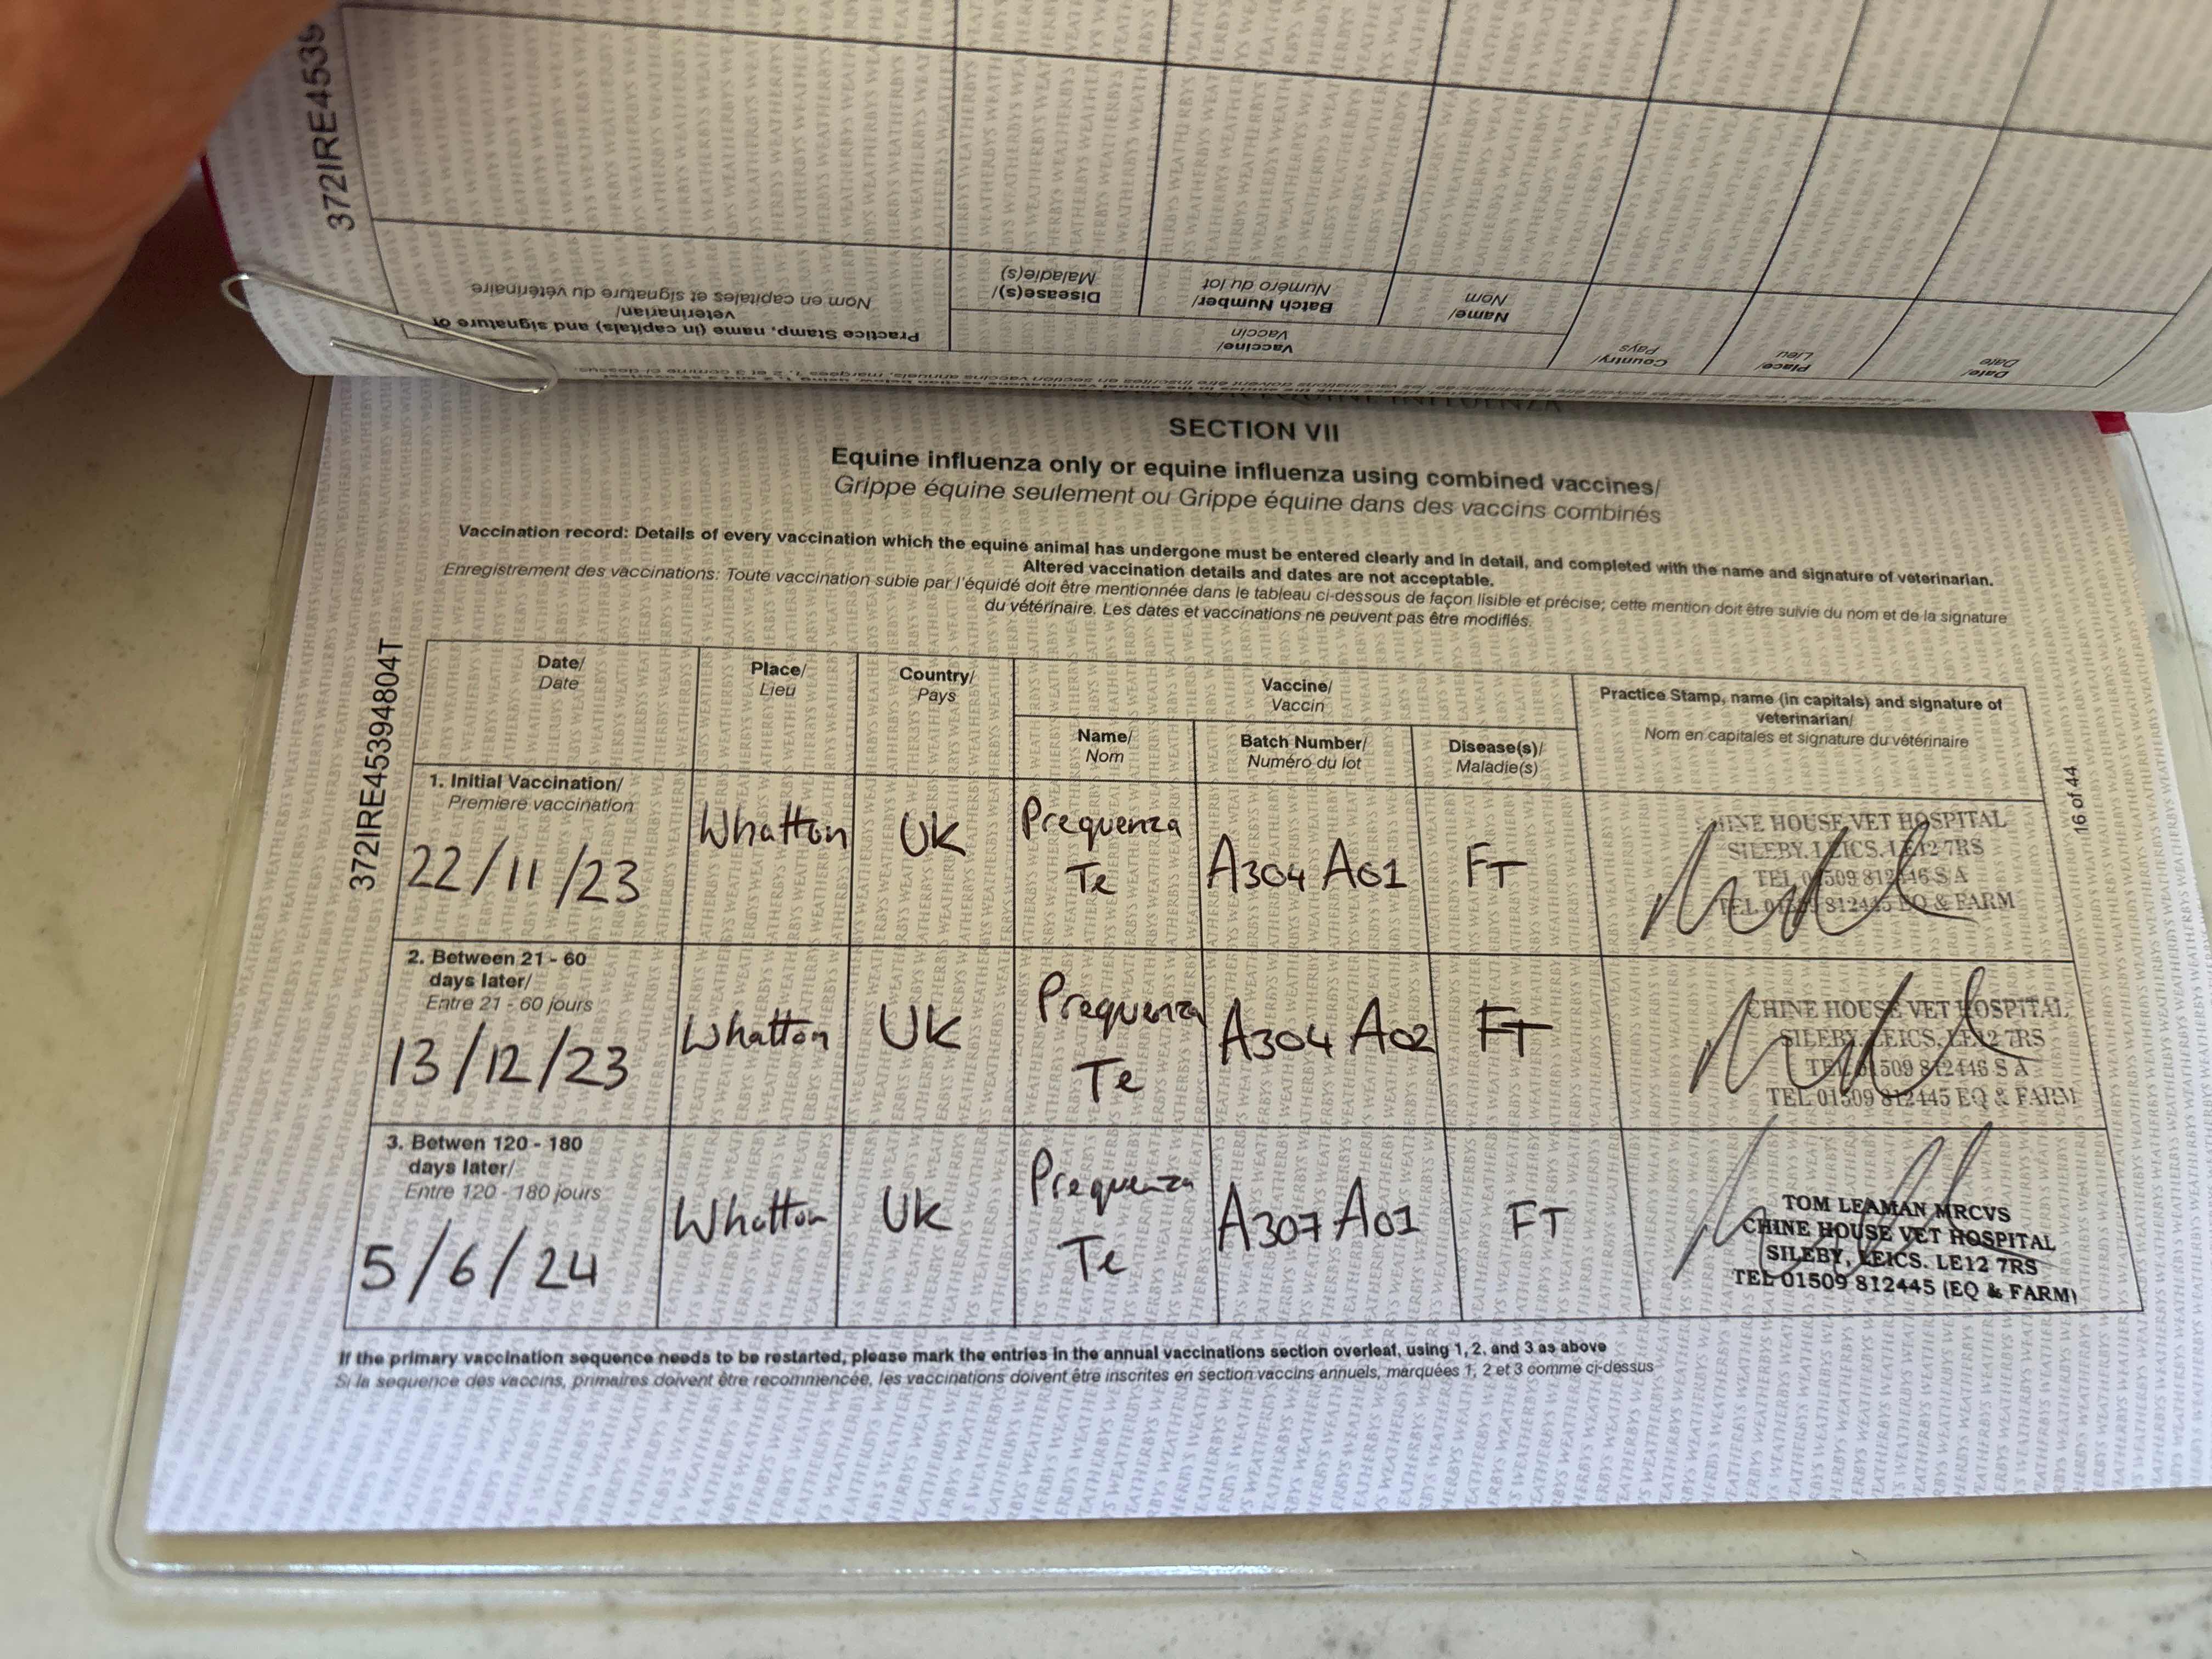 372IRE4539
Practice Stamp, name (in capitals) and signature of
veterinarian/
Nom en capitales et signature du vétérinaire
Disease(s)/
Maladie(s)
Batch Number/
Numéro du lot
Name/
Nom
Vaccine/
Vaccin
Country/
Pays
Place/
Lieu
Date/
Date
EQUINE INFLUENZA
SECTION VII
Equine influenza only or equine influenza using combined vaccines/
Grippe équine seulement ou Grippe équine dans des vaccins combinés
Vaccination record: Details of every vaccination which the equine animal has undergone must be entered clearly and in detail, and completed with the name and signature of veterinarian.
Altered vaccination details and dates are not acceptable.
Enregistrement des vaccinations: Toute vaccination subie par l'équidé doit être mentionnée dans le tableau ci-dessous de façon lisible et précise; cette mention doit être suivie du nom et de la signature
du vétérinaire. Les dates et vaccinations ne peuvent pas être modifiés.
372IRE45394804T
16 of 44
Date/
Date
Place/
Lieu
Country/
Pays
Vaccine/
Vaccin
Name/
Nom
Batch Number/
Numéro du lot
Disease(s)/
Maladie(s)
Practice Stamp, name (in capitals) and signature of
veterinarian/
Nom en capitales et signature du vétérinaire
1. Initial Vaccination/
Premiere vaccination
22/11/23
Whatton
UK
Prequenza
Te
A304 A01
FT
CHINE HOUSE VET HOSPITAL
SILEBY, LEICS. LE12 7RS
TEL 01509 812446 S A
TEL 01509 812445 EQ & FARM
2. Between 21 - 60
days later/
Entre 21 - 60 jours
13/12/23
Whatton
UK
Prequenza
Te
A304 A02
FT
CHINE HOUSE VET HOSPITAL
SILEBY, LEICS. LE12 7RS
TEL 01509 812446 S A
TEL 01509 812445 EQ & FARM
3. Betwen 120 - 180
days later/
Entre 120 - 180 jours
5/6/24
Whatton
UK
Prequenza
Te
A307 A01
FT
TOM LEAMAN MRCVS
CHINE HOUSE VET HOSPITAL
SILEBY, LEICS. LE12 7RS
TEL 01509 812445 (EQ & FARM)
If the primary vaccination sequence needs to be restarted, please mark the entries in the annual vaccinations section overleaf, using 1, 2, and 3 as above
Si la sequence des vaccins, primaires doivent être recommencée, les vaccinations doivent être inscrites en section vaccins annuels, marquées 1, 2 et 3 comme ci-dessus